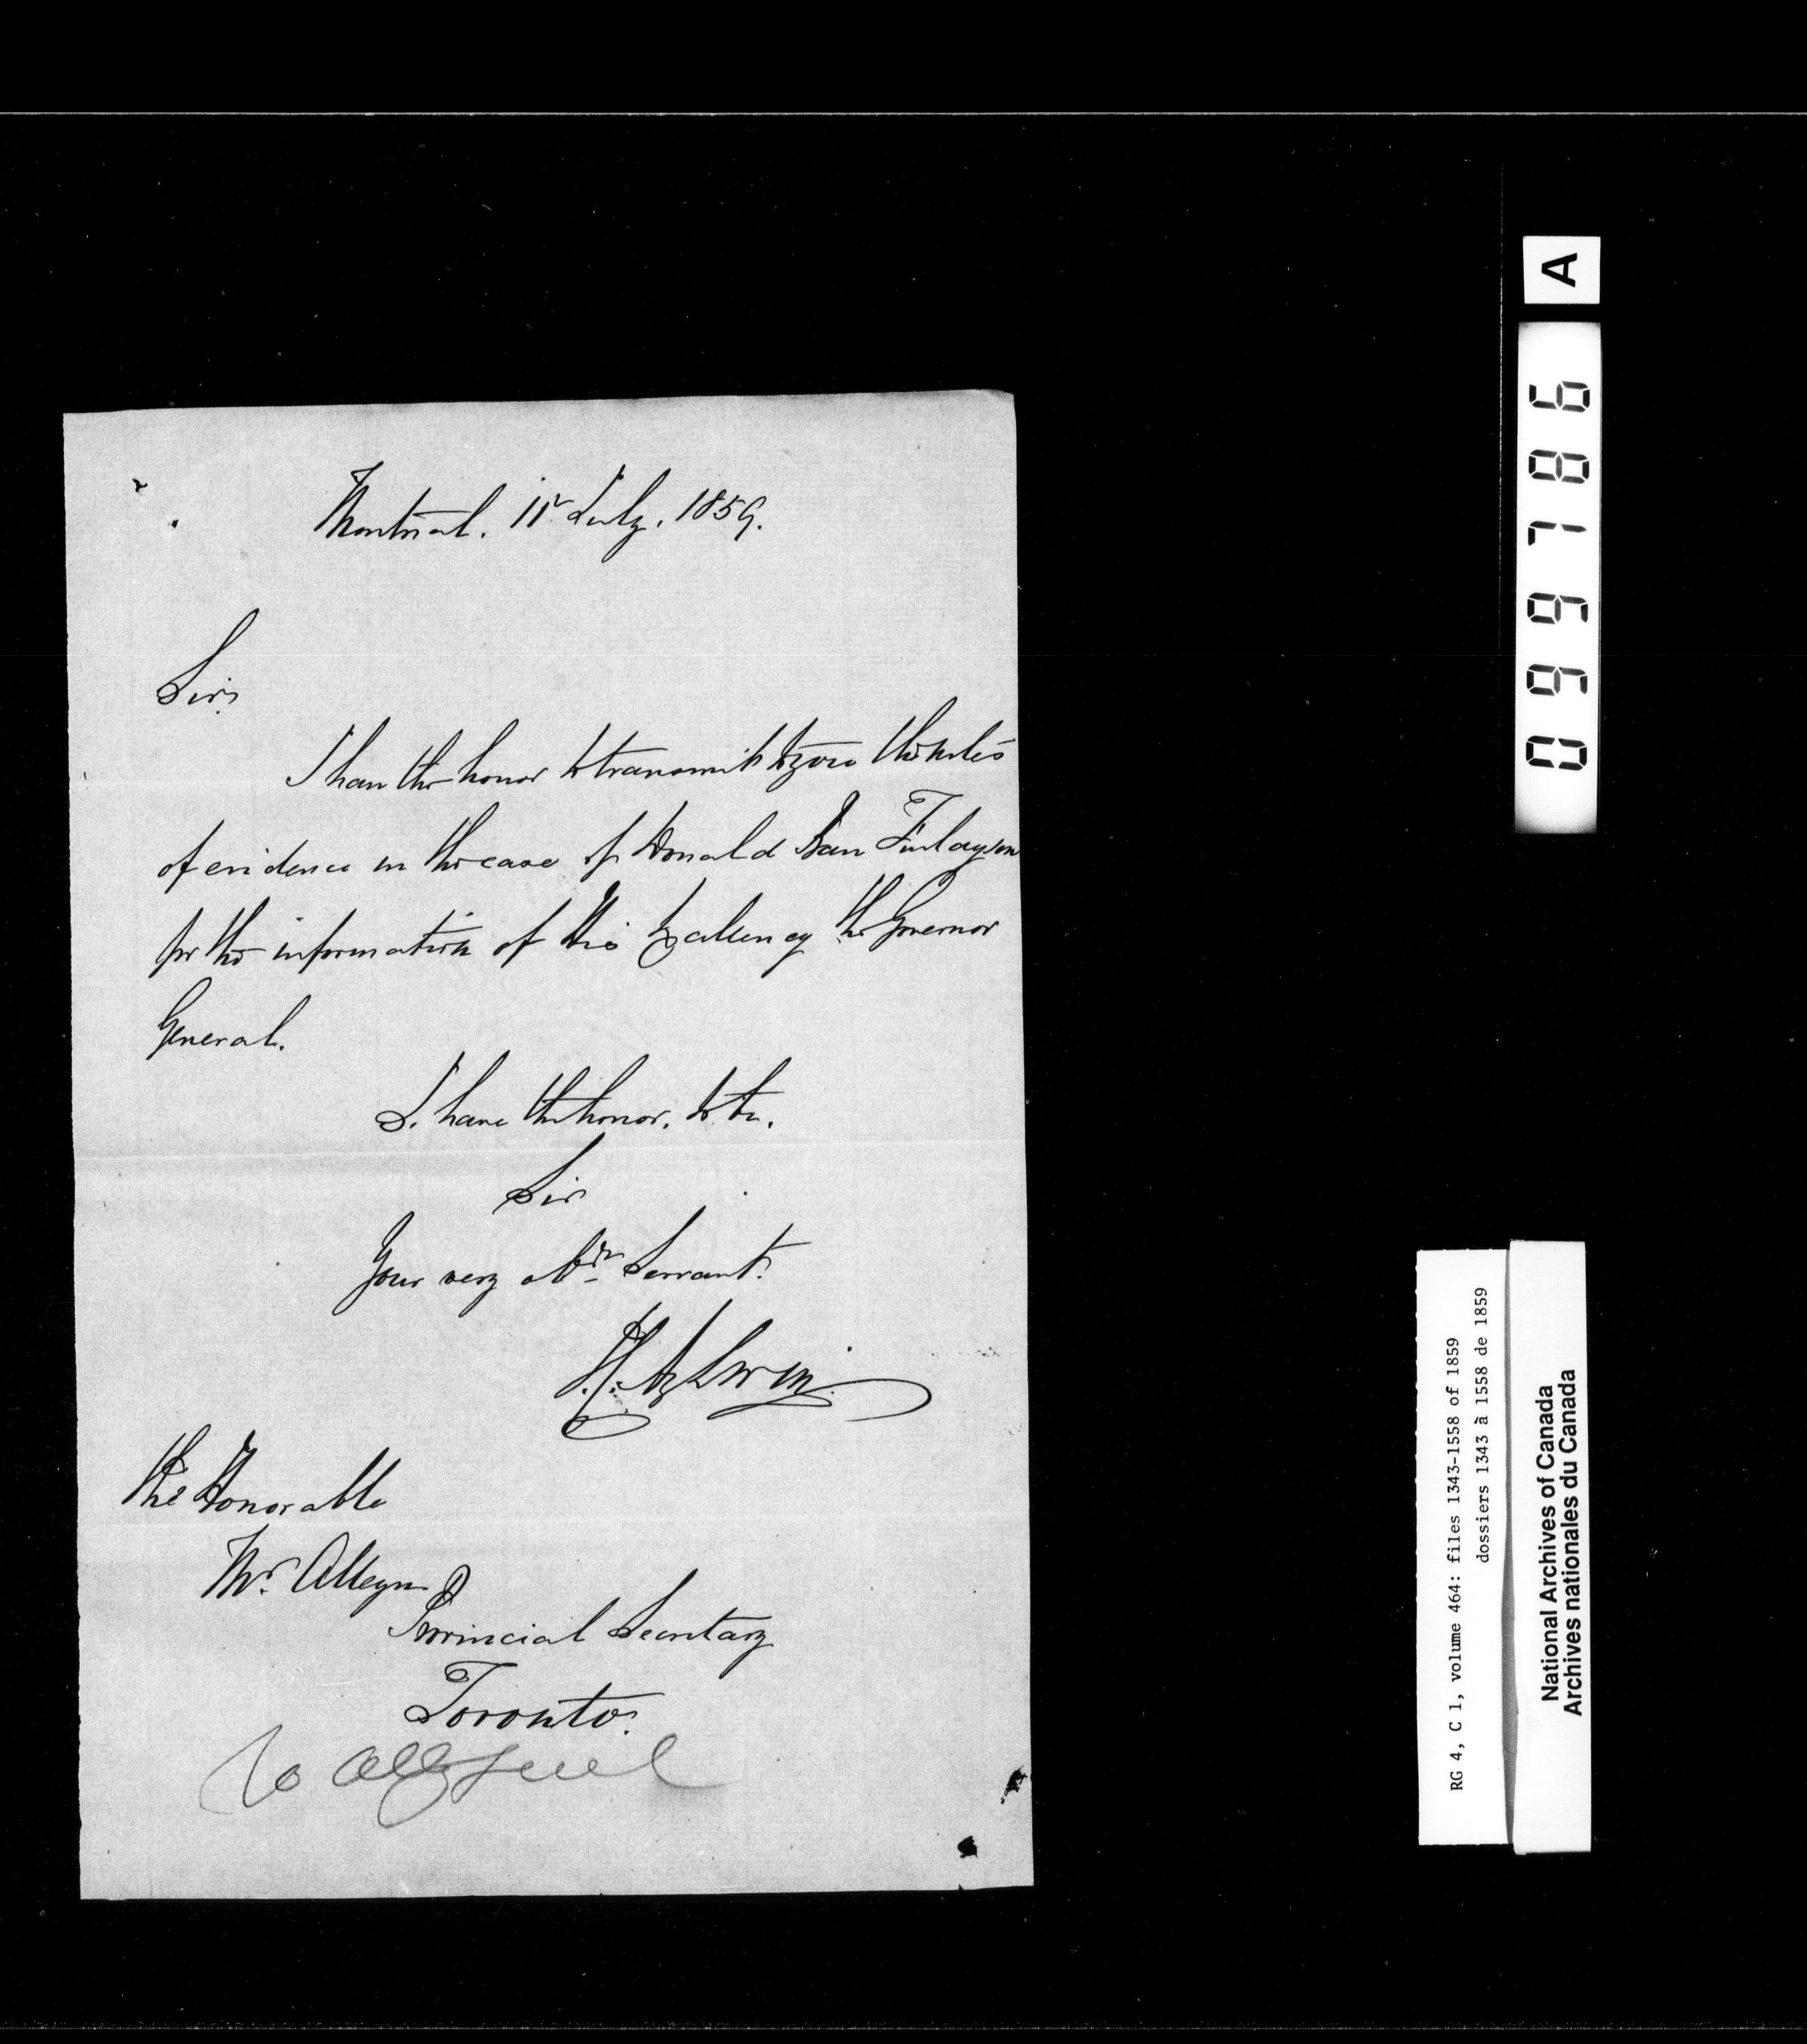 Montreal. 11 July. 1859.
Sir,
I have the honor to transmit to you the notes
of evidence in the case of Donald Finlayson
for the information of His Excellency the Governor
General.
I have the honor, to be.
Sir
Your very obdt Servant.
Aylwin
The Honorable
Mr. Alleyn
Provincial Secretary
Toronto.
A
099786
RG 4, C 1, volume 464: files 1343-1558 of 1859
dossiers 1343 à 1558 de 1859
National Archives of Canada
Archives nationales du Canada